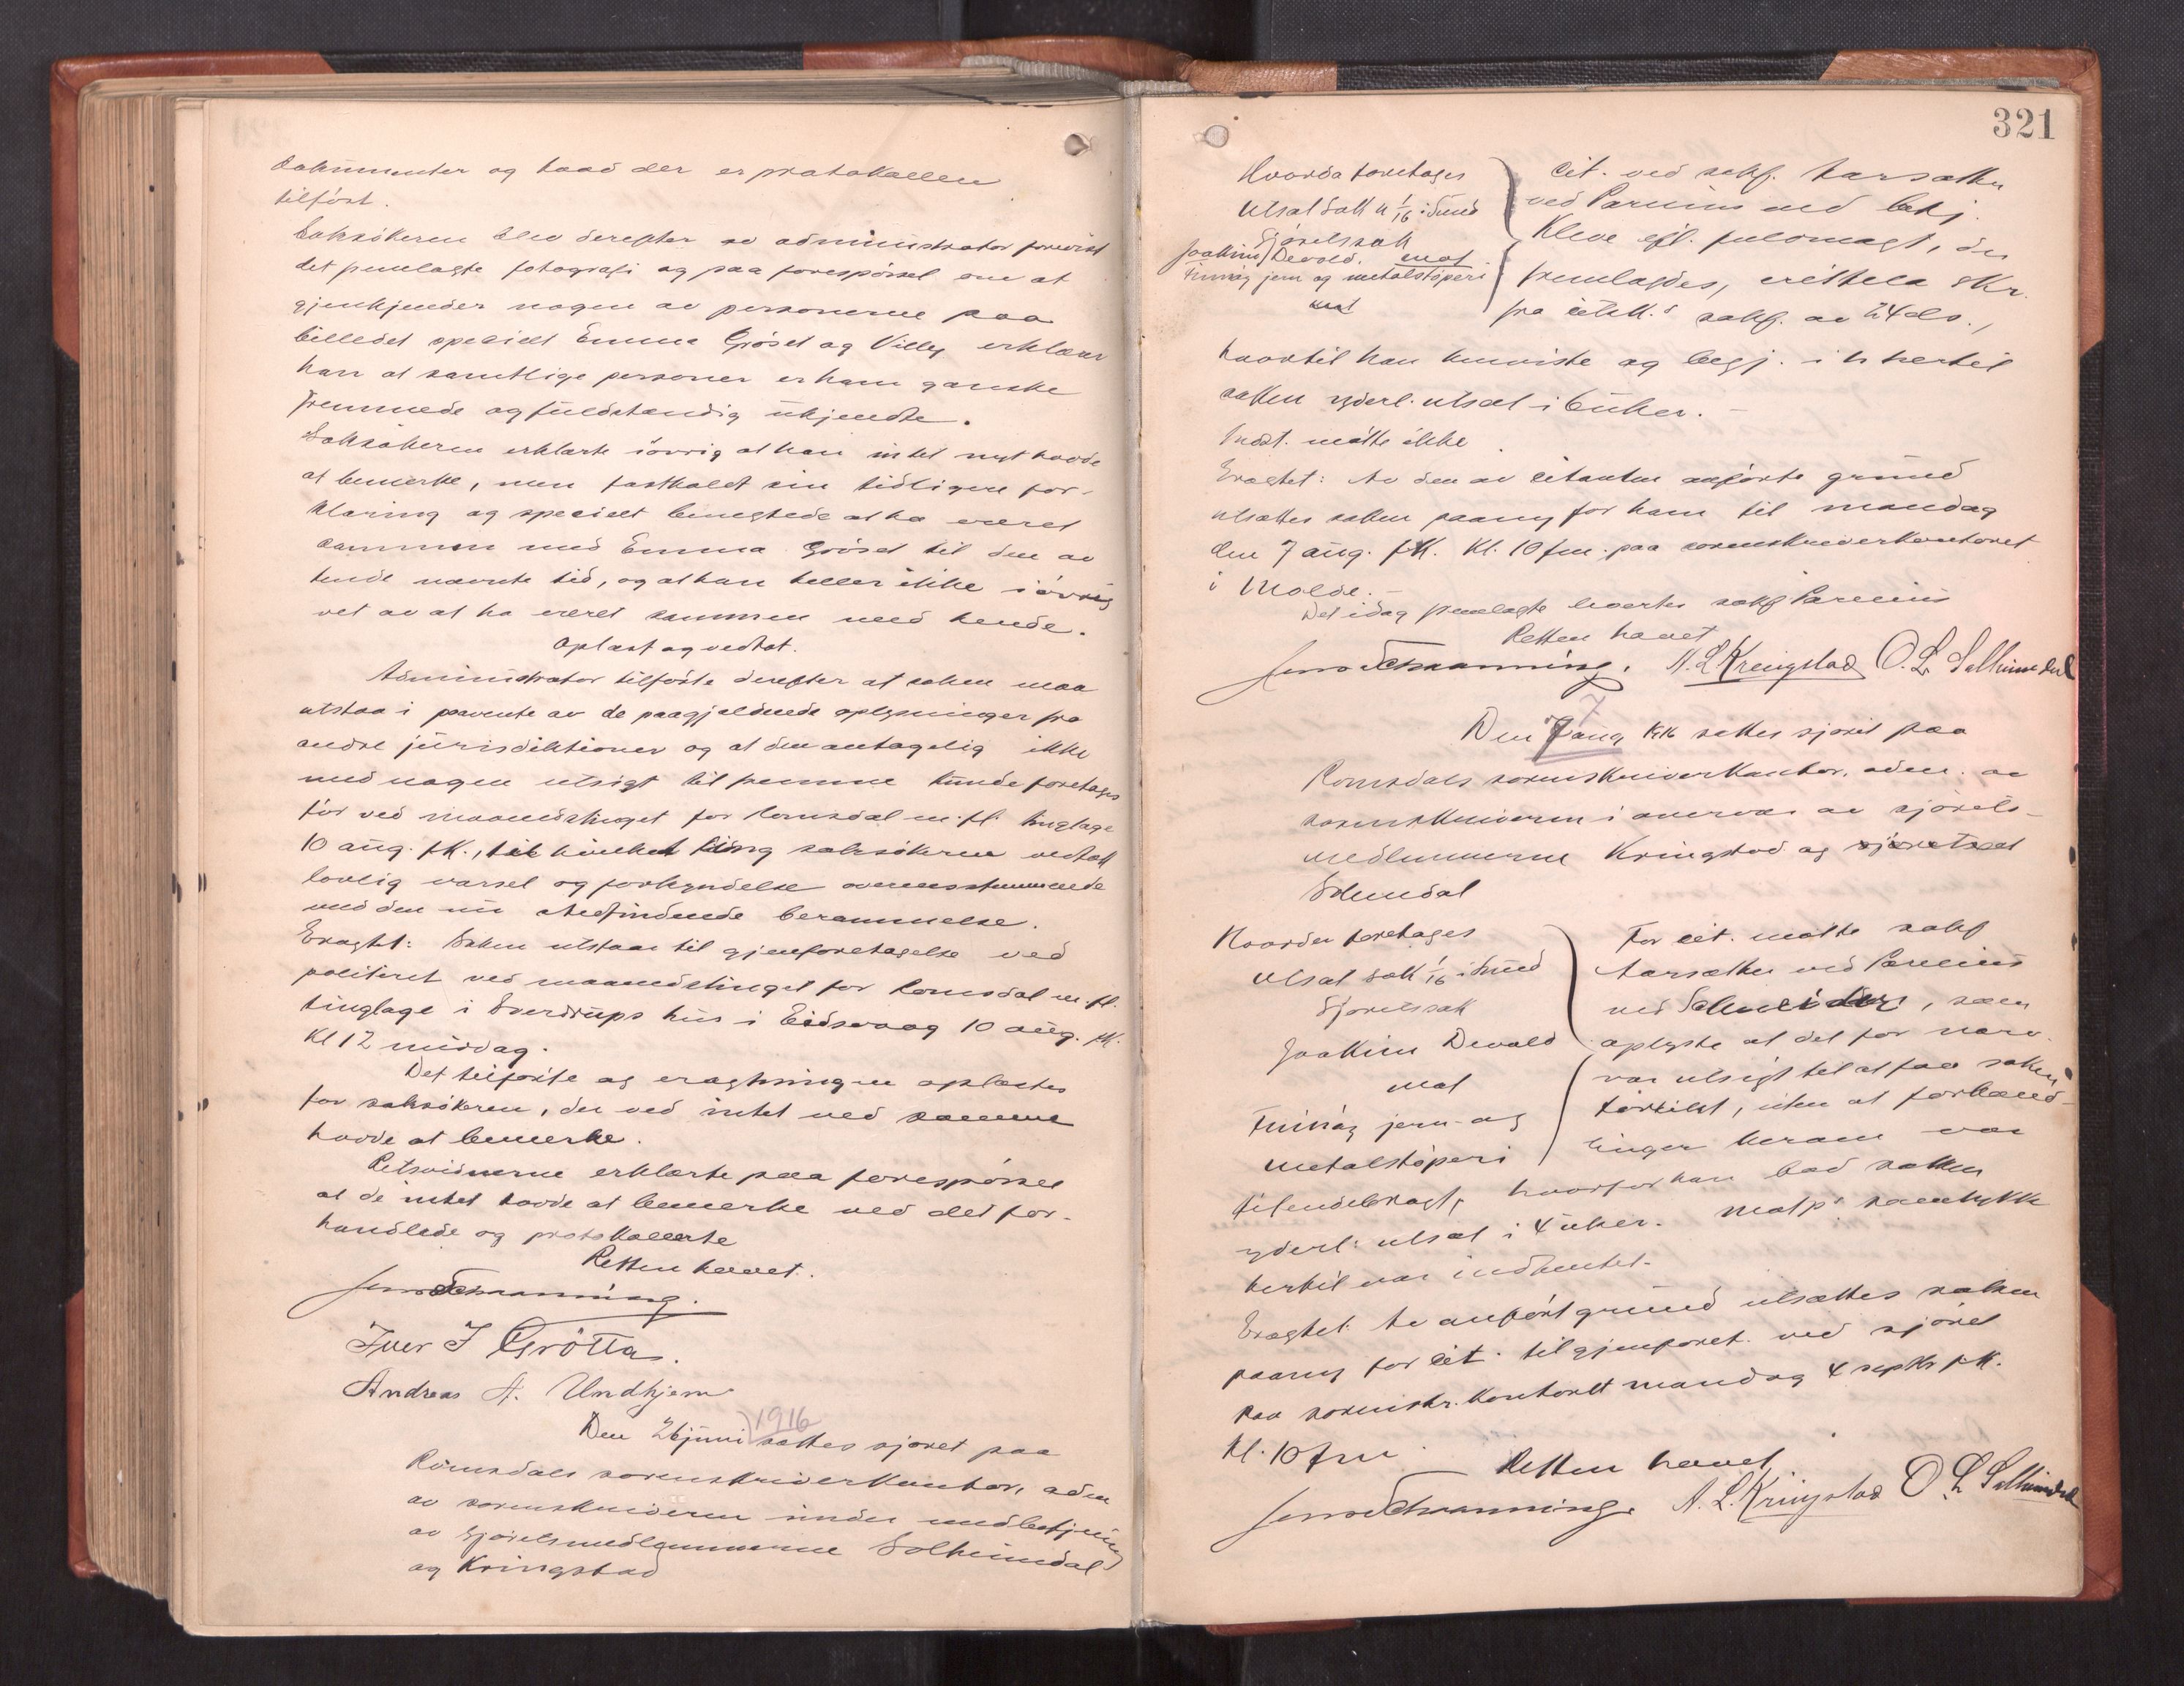 dokumenter og hvad der er protokollen
tilført.
Saksøkeren blev derefter av administrator forevist
det fremlagte fotografi og paa forespørsel om at
gjenkjender nogen av personerne paa
billedet specielt Emma Gröset og Villy erklærer
han at samtlige personer er ham ganske
fremmede og fuldstændig ukjendte.
Saksøkeren erklærte iövrig at han intet nyt havde
at bemerke, men fastholdt sin tidligere for-
klaring og specielt benegtede at ha været
sammen med Emma Gröset til den av
hende nævnte tid, og at han heller ikke iövrig
vet av at ha været sammen med hende.
Oplæst og vedtat.
Administrator tilförte derefter at saken maa
utstaa i påvente av de paagjældende oplysninger fra
andre jurisdiktioner og at den antagelig ikke
med nogen utsigt til fremme kunde foretages
för ved maanedstinget for Romsdal m.fl. tinglage
10 aug. f.k., til hvilket ting saksökeren vedtok
lovlig varsel og forkyndelse overensstemmende
med den nu stedfindende berammelse.
Eragtet: Saken utstaar til gjenforetagelse ved
politiret ved maanedstinget for Romsdal m.fl.
tinglage i Sverdrups hus i Eidsvaag 10 aug. f.k.
Kl 12 middag.
Det tilförte og eragtningen oplæstes
for saksökeren, der ved intet ved samme
havde at bemerke.
Retsvidnerne erklærte paa forespörsel
at de intet havde at bemerke ved det for-
handlede og protokollerte
Retten hævet.
Jens Schanning.
Iver J Grötta.
Andreas A. Undhjem
Den 26 juni 1916 sattes sjöret paa
Romsdals sorenskriverkontor, adm
av sorenskriveren under medbetjening
av sjöretsmedlemmerne Solheimdal
og Kringstad
321
Hvorda foretages
Utsat Sak № 1/16 i Sund
Sjöretssak
Joakim Devold. mot
jern og metalstöperi
mot
Cit. ved sakf. Aarsæther
ved Parelius ved
Kleve efl. fuldmagt, der
fremlagdes, skr.
fra sakf. av 24 ds.,
hvortil han henviste og begj. i h hertil
sakken yderl. utsat i 6 uker.
Indst. mötte ikke
Eragtet: Av den av citanten anförte grund
utsættes sakken paany for ham til mandag
den 7 aug. f.k. kl. 10 fm. paa sorenskriverkontoret
i Molde.
Det idag fremlagte leverter sakf Parelius
Retten hævet
Jens Schanning. A. L Kringstad O. L. Solheimdal
7
Den 7 aug 1916 sattes sjöret paa
Romsdals sorenskriverkontor, adm. av
sorenskriveren i overvær av sjörets-
medlemmerne Kringstad og sjöretsed
Solemdal
Hvorder foretages
Utsat sak 1/16 i Sund
Sjöretssak
Joakim Devold
mot
jern- og
metalstöperi
For cit. mötte sakf
Aarsæther ved Parelius
ved Schneider, som
oplyste at det for nærv.
var utsigt til at faa saken
forlikt, uten at forhand-
linger herom var
tilendebragt, hvorfor han bad sakken
yderl. utsat i 4 uker. Motp.s samtykke
hertil var indhentet.
Eragtet: Av anfört grund utsættes sakken
paany for cit. til gjenforet. ved sjöret
paa sorenskr.kontoret mandag 4 septbr f.k.
kl. 10 fm
Retten hævet
Jens Schanning. A. L. Kringstad O. L. Solheimdal